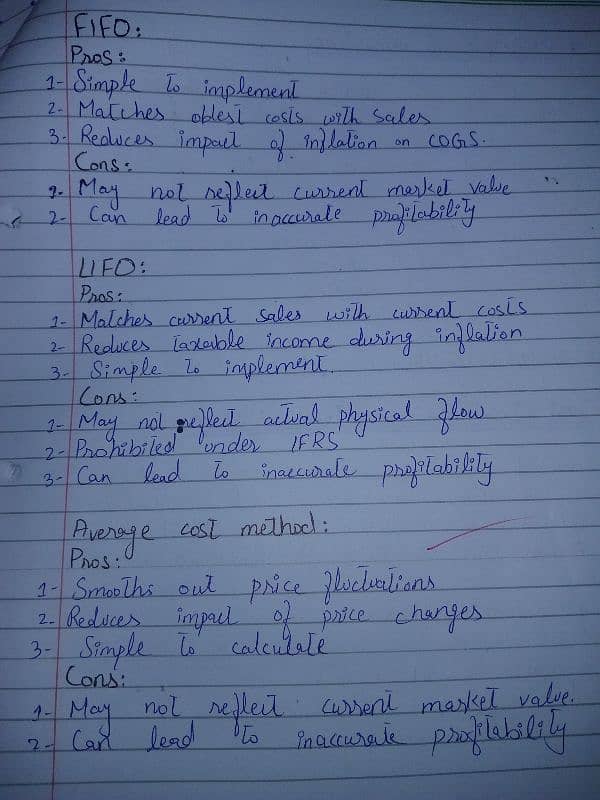 FIFO:
Pros:
1- Simple to implement
2- Matches oldest costs with sales
3- Reduces impact of inflation on COGS.
Cons:
1- May not reflect current market value
2- Can lead to inaccurate profitability
LIFO:
Pros:
1- Matches current sales with current costs
2- Reduces taxable income during inflation
3- Simple to implement
Cons:
1- May not reflect actual physical flow
2- Prohibited under IFRS
3- Can lead to inaccurate profitability
Average cost method:
Pros:
1- Smooths out price fluctuations
2- Reduces impact of price changes
3- Simple to calculate
Cons:
1- May not reflect current market value.
2- Can lead to inaccurate profitability